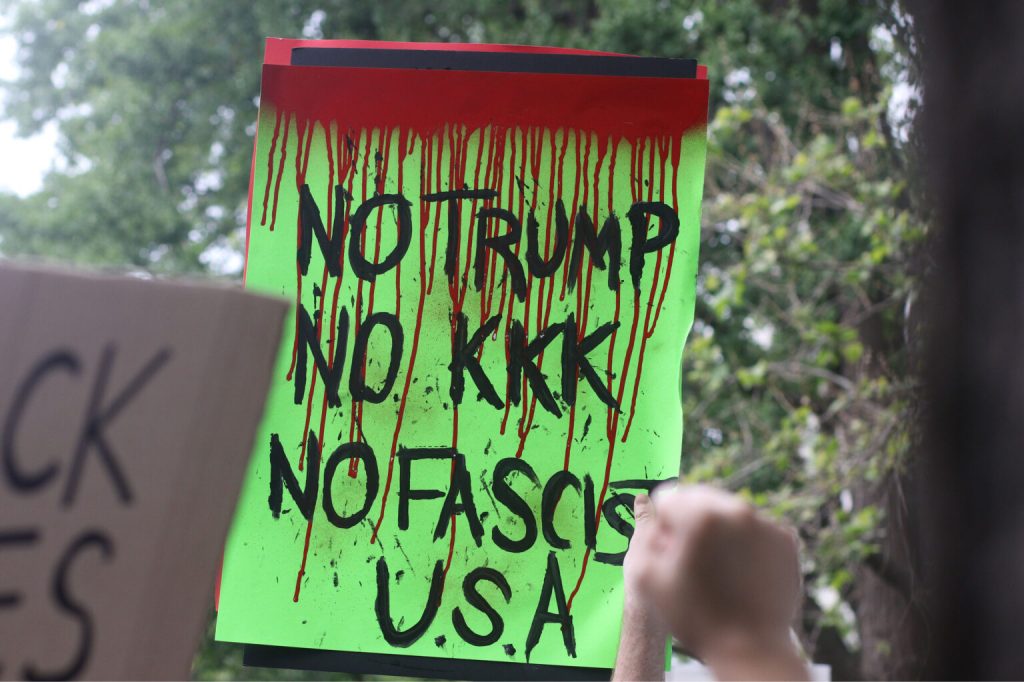 NO TRUMP
NO KKK
NO FASCIST
U.S.A